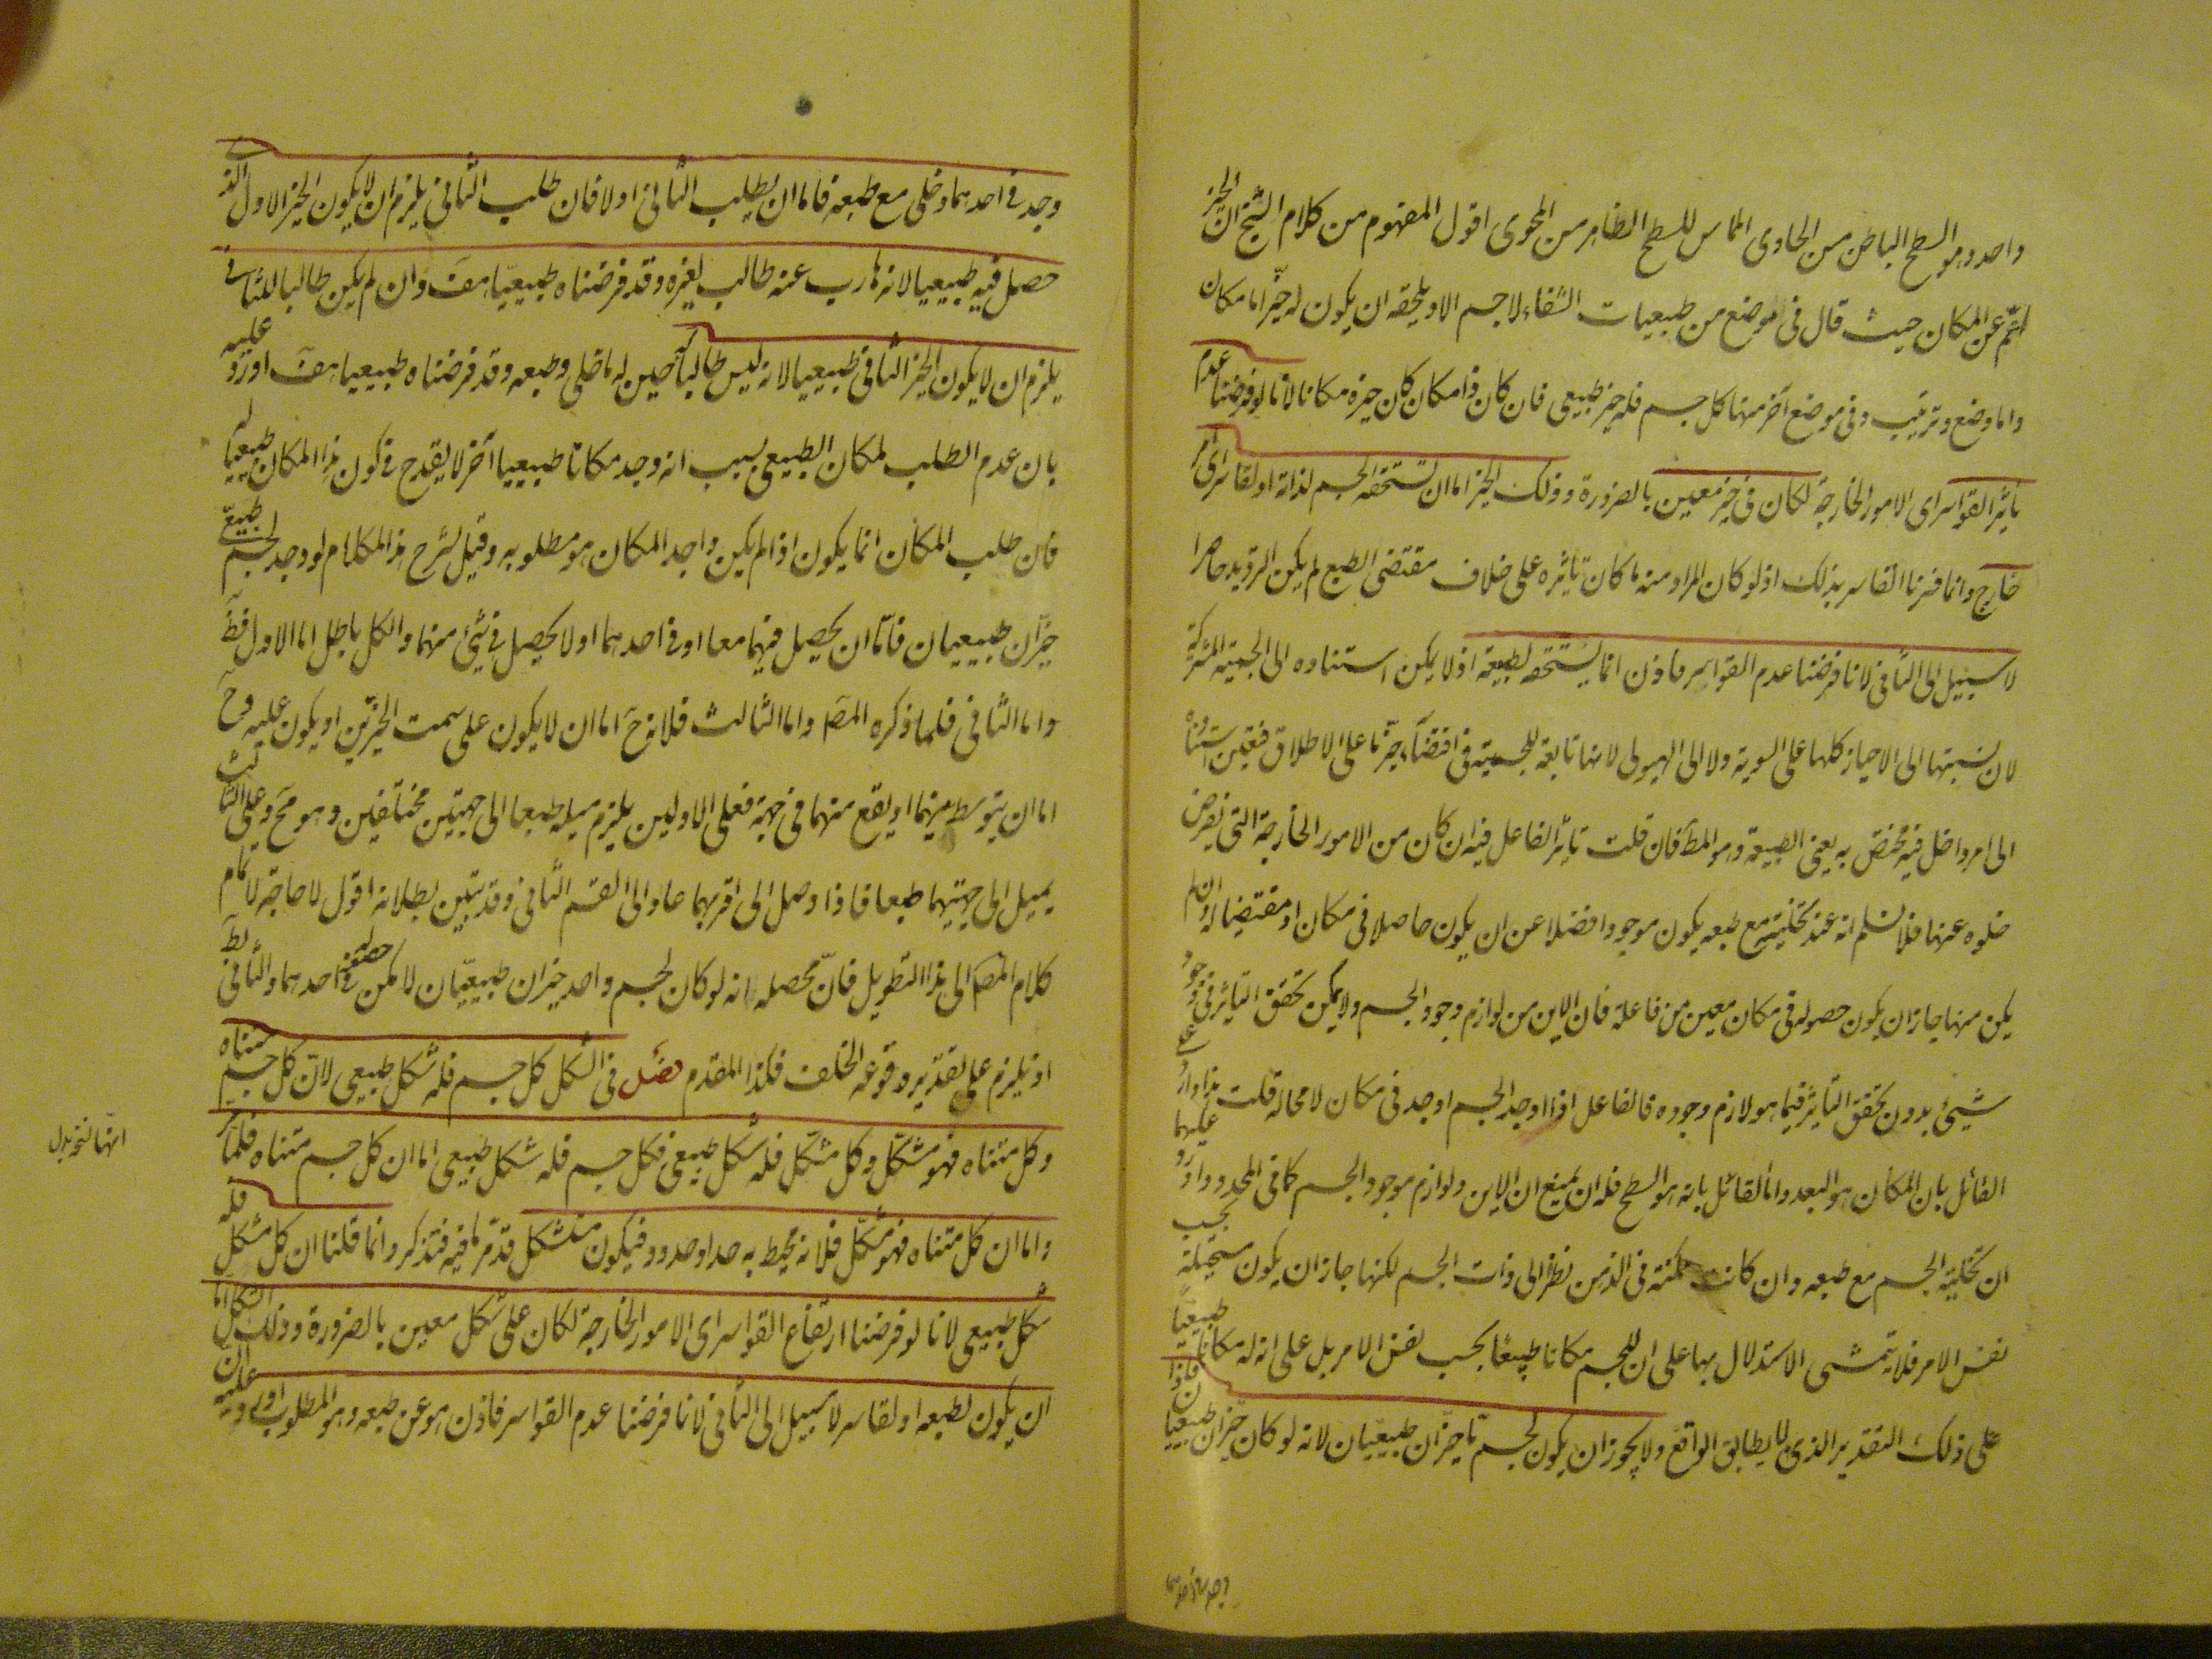 واحد وهو السطح الباطن من الحاوى المماس للسطح الظاهر من المحوى اقول المفهوم من كلام الشيخ ان الحيز
اعم عن المكان حيث قال فى موضع من طبيعيات الشفاء لا جسم الا ويلحقه ان يكون له حيز اما مكان
واما وضع وترتيب وفى موضع آخر منها كل جسم فله حيز طبيعى فان كان ذا مكان كان حيزه مكانا لانا لو فرضنا عدم
تأثير القواسر اى الامور الخارجة لكان فى حيز معين بالضرورة وذلك الحيز اما ان يستحقه الجسم لذاته او لقاسر اى امر
خارج وانما فسرنا القاسر بذلك اذ لو كان المراد منه ما كان تأثيره على خلاف مقتضى الطبع لم يكن الترديد حاصرا
لا سبيل الى الثانى لانا فرضنا عدم القواسر فاذن انما يستحقه لطبيعته اذ لا يمكن استناده الى الجسمية المشتركة
لان نسبتها الى الاحياز كلها على السوية ولا الى الهيولى لانها تابعة للجسمية فى اقتضاء حيز ما على الاطلاق فتعين استناده
الى امر داخل فيه مختص به يعنى الطبيعة وهو المط فان قلت تأثير الفاعل فيه ان كان من الامور الخارجة التى نفرض
خلوه عنها فلا نسلم انه عند تخليته مع طبعه يكون موجودا فضلا عن ان يكون حاصلا فى مكان او مقتضيا له وان لم
يكن منها جاز ان يكون حصوله فى مكان معين من فاعله فان الاين من لوازم وجود الجسم ولا يمكن تحقق التأثير فى وجود
شيئ بدون تحقق التأثير فيما هو لازم وجوده فالفاعل اذا اوجد الجسم اوجد فى مكان لا محالة قلت هذا وارد على
القائل بان المكان هو البعد واما القائل بانه هو السطح فله ان يمنع ان الاين من لوازم موجود الجسم كما فى المحدد وارد عليهما
ان تخلية الجسم مع طبعه وان كانت ممكنة فى الذهن نظرا الى ذات الجسم لكنها جاز ان يكون مستحيلة بحسب
نفس الامر فلا يتمشى الاستدلال بها على ان للجسم مكانا طبيعيا بحسب نفس الامر بل على ان له مكانا طبيعيا
على ذلك التقدير الذى لا يطابق الواقع ولا يجوز ان يكون لجسم ما حيزان طبيعيان لانه لو كان حيزان طبيعيان فاذا
وجد فى احدهما
وجد فى احدهما وخلى مع طبعه فاما ان يطلب الثانى اولا فان طلب الثانى يلزم ان لا يكون الحيز الاول الذى
حصل فيه طبيعيا لانه هارب عنه طالب لغيره وقد فرضناه طبيعيا هف وان لم يكن طالبا للثانى
يلزم ان لا يكون الحيز الثانى طبيعيا لانه ليس طالبا له حين له ما خلى وطبعه وقد فرضناه طبيعيا هف اورد عليه
بان عدم الطلب لمكان الطبيعى بسبب انه وجد مكانا طبيعيا آخر لا يقدح فى كون هذا المكان طبيعيا له
فان طلب المكان انما يكون اذا لم يكن واجد المكان هو مطلوبه وقيل لشرح هذا الكلام لو وجد لجسم طبيعى
حيزان طبيعيان فاما ان يحصل فيهما معا او فى احدهما او لا يحصل فى شئ منهما والكل باطل اما الاول فظ
واما الثانى فلما ذكره المص واما الثالث فلانه ح اما ان لا يكون على سمت الحيزين او يكون عليه وح
اما ان يتوسط بينهما او يقع منهما فى جهة فعلى الاولين يلزم ميله طبعا الى جهتين مختلفتين وهو مح وعلى الثالث
يميل الى جهتيهما طبعا فاذا وصل الى اقربهما عاد الى القسم الثانى وقد تبين بطلانه اقول لا حاجة لاتمام
كلام المص الى هذا التطويل فان محصله انه لو كان لجسم واحد حيزان طبيعيان لامكن حصوله فى احدهما والثانى بط
اذ يلزم على تقدير وقوعه الخلف فكذا المقدم فصل فى الشكل كل جسم فله شكل طبيعى لان كل جسم متناه
وكل متناه فهو مشكل وكل مشكل فله شكل طبيعى فكل جسم فله شكل طبيعى اما ان كل جسم متناه فلما مر
واما ان كل متناه فهو مشكل فلانه يحيط به حد او حدود فيكون متشكلا قد مر ما فيه فتذكر وانما قلنا ان كل مشكل فله
شكل طبيعى لانا لو فرضنا ارتفاع القواسر اى الامور الخارجة لكان على شكل معين بالضرورة وذلك الشكل اما
ان يكون لطبعه او لقاسر لا سبيل الى الثانى لانا فرضنا عدم القواسر فاذن هو عن طبعه وهو المطلوب اورد عليه